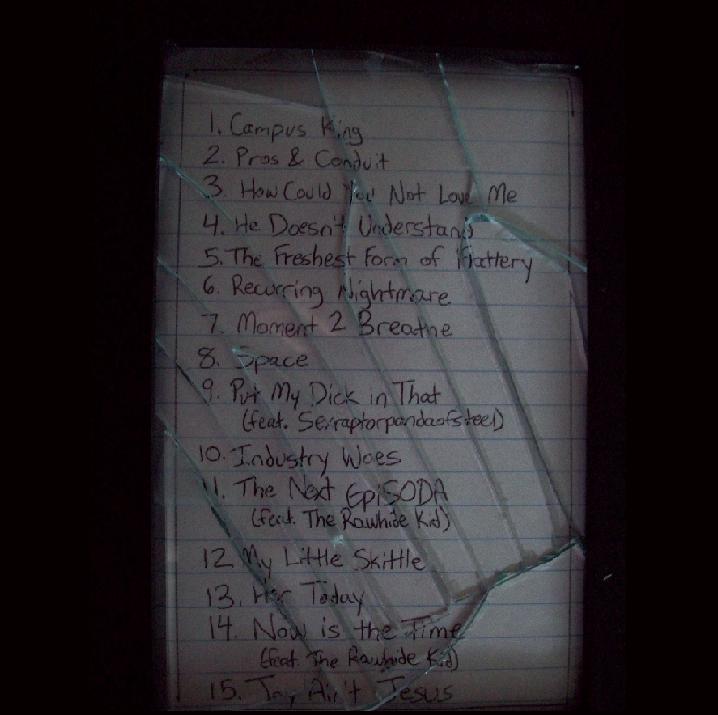 1. Campus King
2. Pros & Conduit
3. How Could You Not Love Me
4. He Doesn't Understand
5. The Freshest Form of Flattery
6. Recurring Nightmare
7. Moment 2 Breathe
8. Space
9. Put My Dick in That
(feat. Serraptorpandaofsteel)
10. Industry Woes
11. The Next EpiSODA
(feat. The Rawhide Kid)
12. My Little Skittle
13. Her Today
14. Now is the Time
(feat. The Rawhide Kid)
15. Ain't Jesus